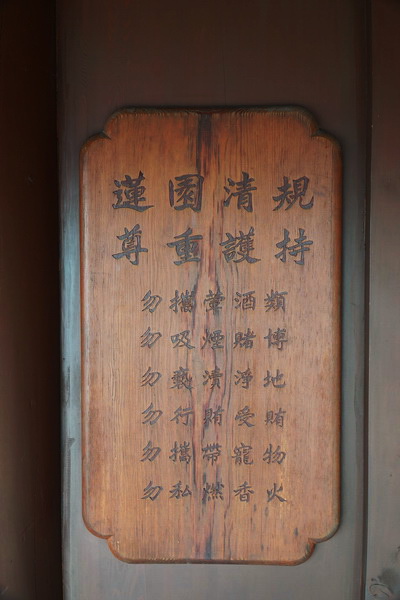 蓮園清規
尊重護持
勿攜葷酒類
勿吸煙賭博
勿褻瀆淨地
勿行賄受賄
勿攜帶寵物
勿私燃香火